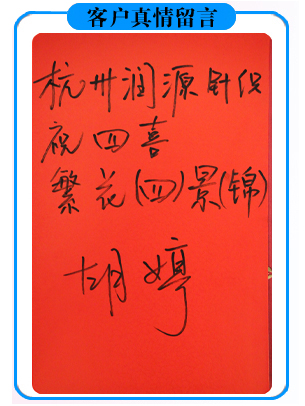 客户真情留言
杭州润源针织
祝四喜
繁花(四)景(锦)
胡婷